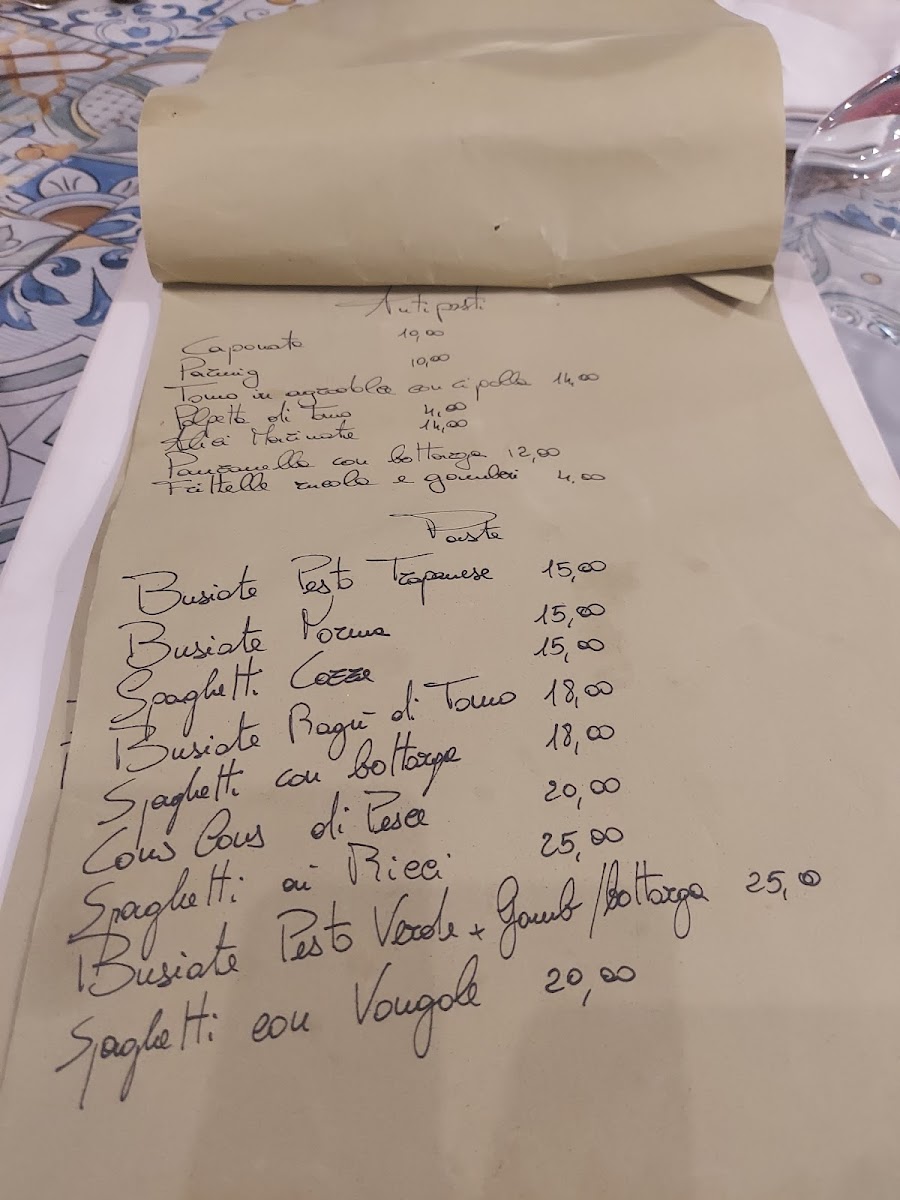 Antipasti
Caponata 10,00
Parmig 10,00
Tonno in agrodolce con cipolla 14,00
Polpetta di Tonno 4,00
Alici Marinate 14,00
Panzanella con bottarga 12,00
Frittella rucola e gamberi 4,00
Paste
Busiate Pesto Trapanese 15,00
Busiate Norma 15,00
Spaghetti Cozze 15,00
Busiate Ragù di Tonno 18,00
Spaghetti con bottarga 18,00
Cous Cous di Pesce 20,00
Spaghetti ai Ricci 25,00
Busiate Pesto Verde + Gamb/bottarga 25,0
Spaghetti con Vongole 20,00